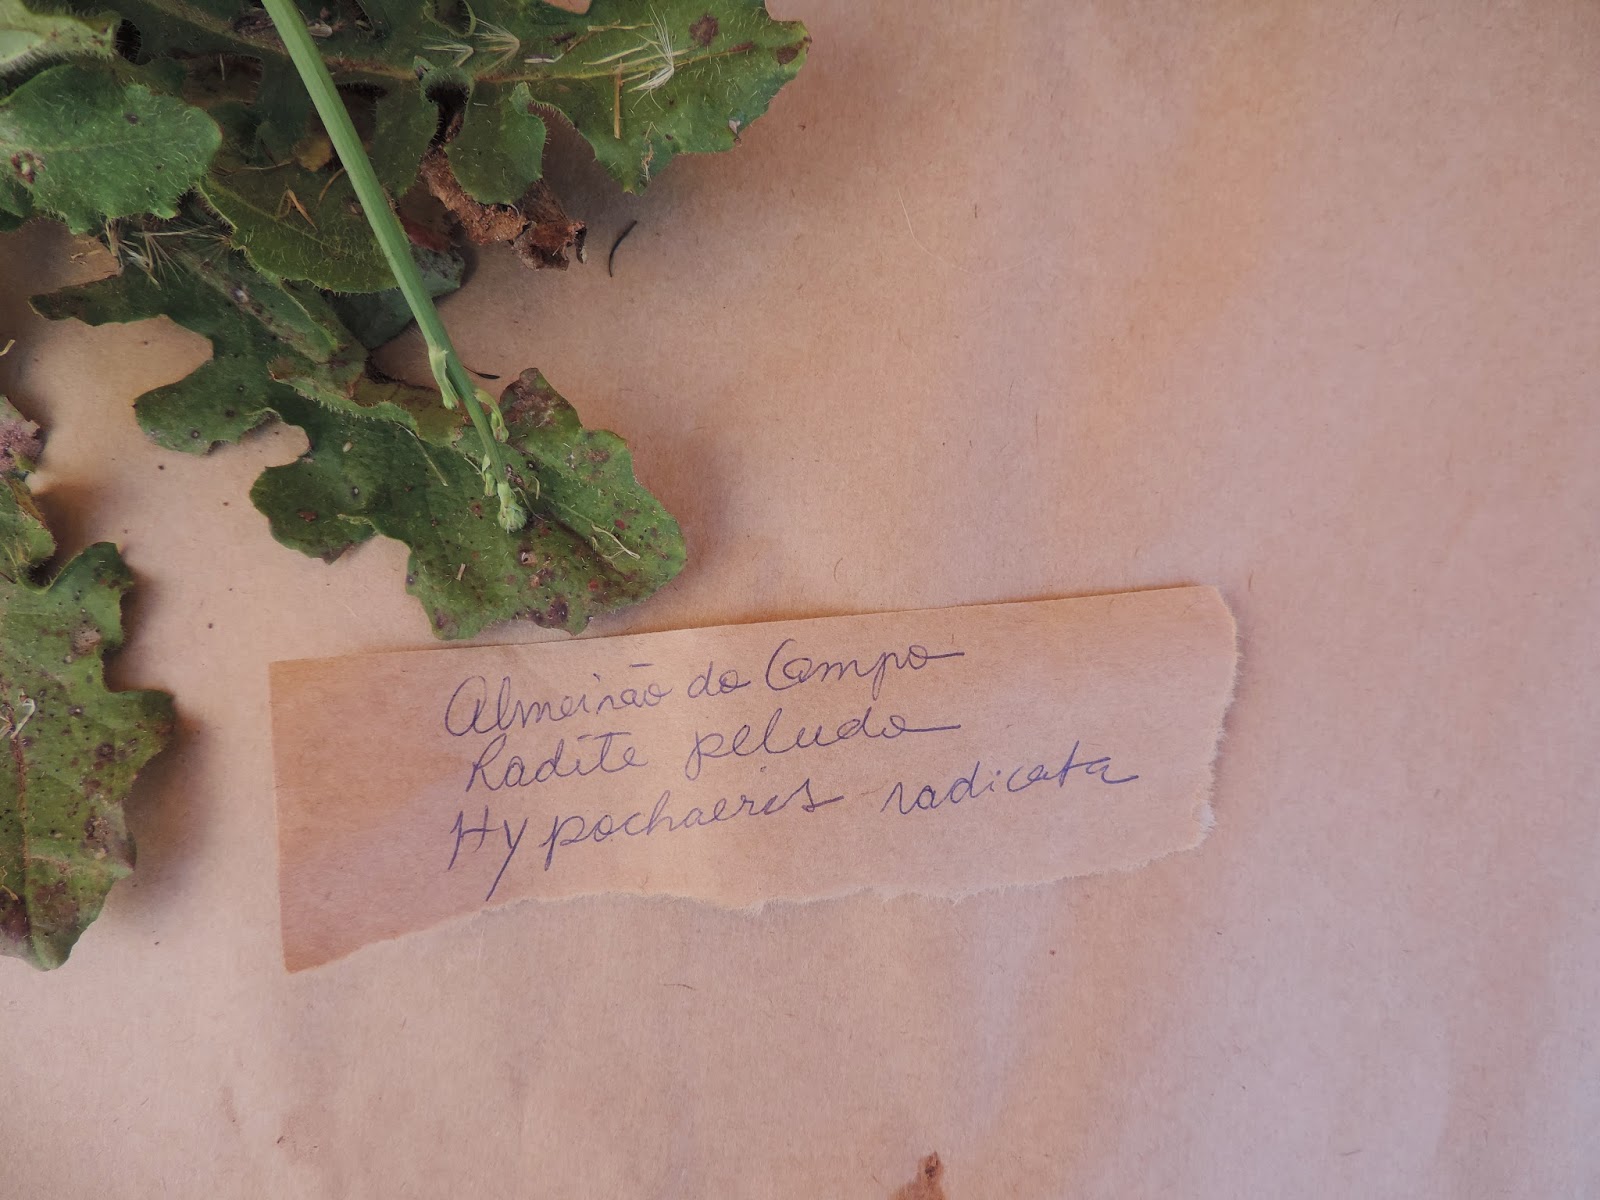 Almeirão do Campo
Radite peludo
Hypochaeris radicata